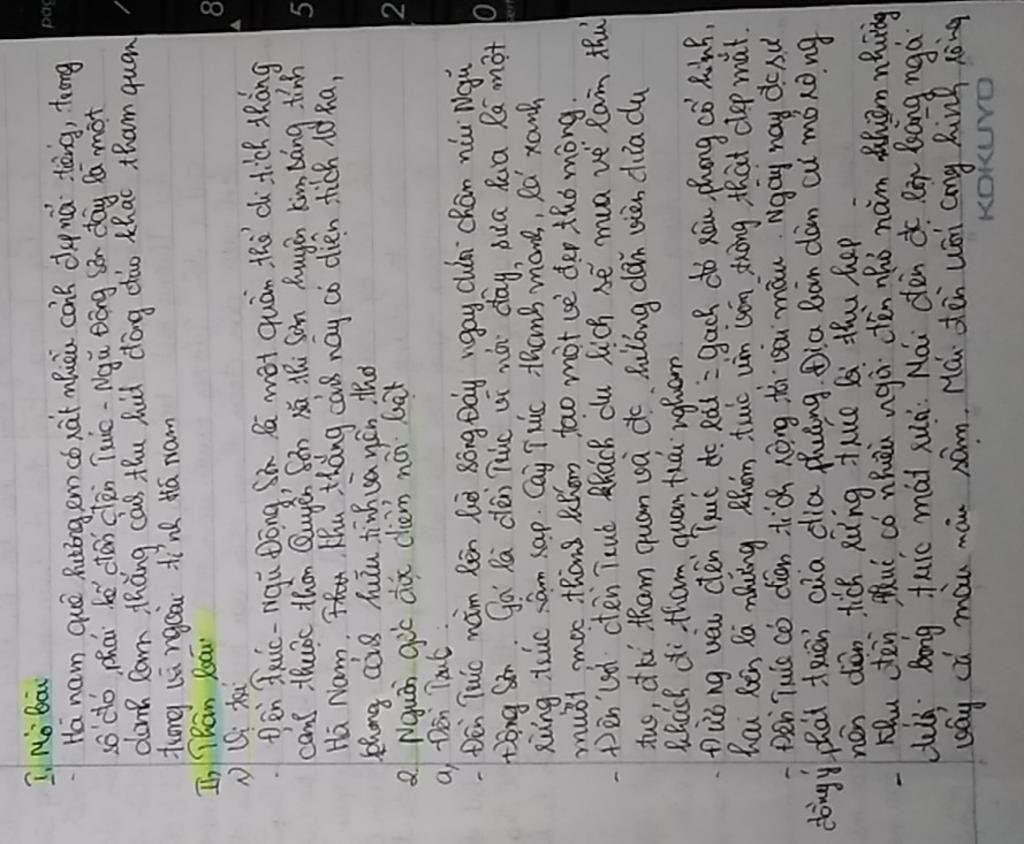 I, Mở bài
- Hà nam quê hương em có rất nhiều cảnh đẹp nổi tiếng, trong
số đó phải kể đến đền Trúc - Ngũ Động Sơn đây là một
danh lam thắng cảnh thu hút đông đảo khác tham quan
trong và ngoài tỉnh Hà nam
II, Thân bài
1) Vị trí
- Đền Trúc - Ngũ Động Sơn là một quần thể di tích thắng
cảnh thuộc thôn Quyển Sơn xã thi Sơn huyện kim bảng tỉnh
Hà Nam. Khu thắng cảnh này có diện tích 10 ha,
phong cảnh hữu tình và nên thơ
2. Nguồn gốc đặc điểm nổi bật
a, Đền Trúc
- Đền Trúc nằm bên bờ sông Đáy ngay dưới chân núi Ngũ
Động Sơn. Gọi là đền Trúc vì nơi đây xưa kia là một
rừng trúc rậm rạp. Cây Trúc thanh mảnh, lá xanh
mướt mọc thành khóm tạo một vẻ đẹp thơ mộng.
- Đến với đền Trúc khách du lịch sẽ mua vé làm thủ
tục, đi tham quan và đc hướng dẫn viên đưa du
khách đi tham quan trải nghiệm
- Đường vào đền Trúc đc lát = gạch đỏ rêu phong cổ kính,
hai bên là những khóm trúc uốn vòm trông thật đẹp mắt.
Đền Trúc có diện tích rộng tới vài mẫu. Ngày nay do sự
đồng ý phát triển của địa phương. Địa bàn dân cư mở rộng
nên diện tích rừng trúc bị thu hẹp
- Khu đền Trúc có nhiều ngôi đền nhỏ nằm khiêm nhường
dưới bóng trúc mát rượi. Mái đền đc lợp bằng ngói
vảy cá màu nâu sậm. Mái đền uốn cong hình rồng
KOKUYO
8
5
2
0